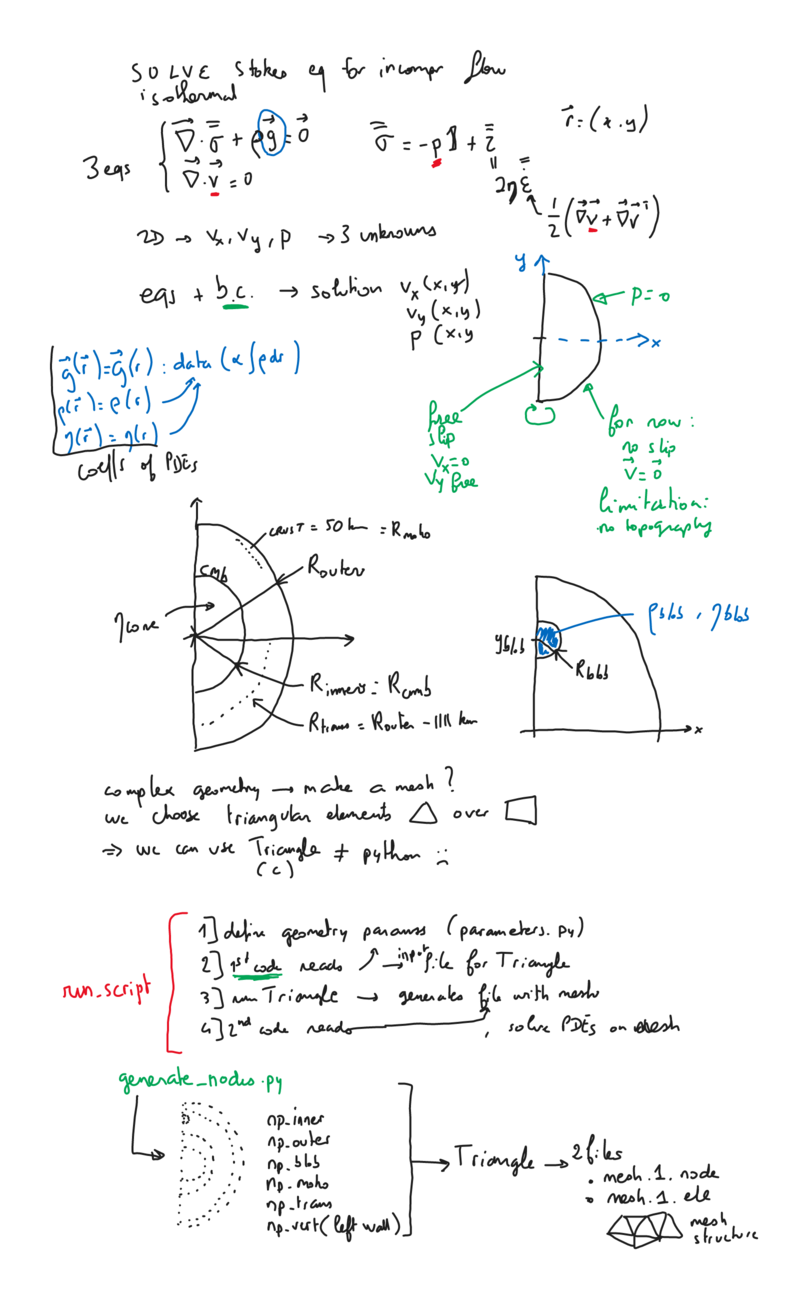 SOLVE Stokes eq for incompr flow
isothermal
3 eqs
∇⃗·σ̿ + ρg⃗ = 0⃗
∇⃗·v⃗ = 0
σ̿ = -p 1 + τ̿
r⃗ = (x.y)
"
2η ε̇
1/2 (∇⃗v⃗ + ∇⃗v⃗ᵀ)
2D → vx, vy, p → 3 unknowns
eqs + b.c. → solution vx (x,y)
vy (x,y)
p (x,y
y
p = 0
x
g⃗(r⃗) = g⃗(r) : data (α ∫ρdr)
ρ(r⃗) = ρ(r)
η(r⃗) = η(r)
coeffs of PDEs
free
slip
vx = 0
vy free
for now:
no slip
v⃗ = 0⃗
limitation:
no topography
CRUST = 50 km = Rmoho
Router
CMB
ηcore
Rinner = Rcmb
Rtrans = Router - 1111 km
ρblob, ηblob
yblob
Rblob
x
complex geometry → make a mesh?
we choose triangular elements △ over
⇒ we can use Triangle ≠ python :(
(C)
run_script
1] define geometry params (parameters.py)
2] 1st code reads → input file for Triangle
3] run Triangle → generates file with mesh
4] 2nd code reads , solve PDEs on mesh
generate_nodes.py
np_inner
np_outer
np_blob
np_moho
np_trans
np_vert (left wall)
→ Triangle → 2 files
• mesh.1.node
• mesh.1.ele
mesh
structure